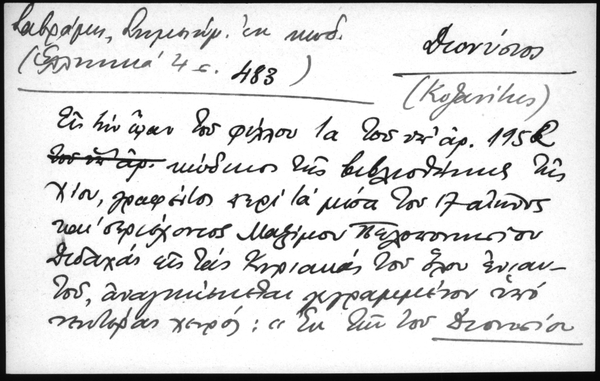 Διονύσιος
(Ἑλληνικά 4 σ. 483)
(Κοζανίτης)
Εἰς τὴν ᾤαν τοῦ φύλλου 1α τοῦ ὑπ' ἀρ. 195
τοῦ ὑπ' ἀρ. κώδικος τῆς βιβλιοθήκης τῆς
Χίου, γραφέντος περὶ τὰ μέσα τοῦ 17 αἰῶνος
καὶ περιέχοντος Μαξίμου Πελοποννησίου
Διδαχὰς εἰς τὰς Κυριακὰς τοῦ ὅλου ἐνιαυ-
τοῦ, ἀναγινώσκεται γεγραμμένον ὑπὸ
νεωτέρας χειρός: " Ἐκ τῶν τοῦ Διονυσίου